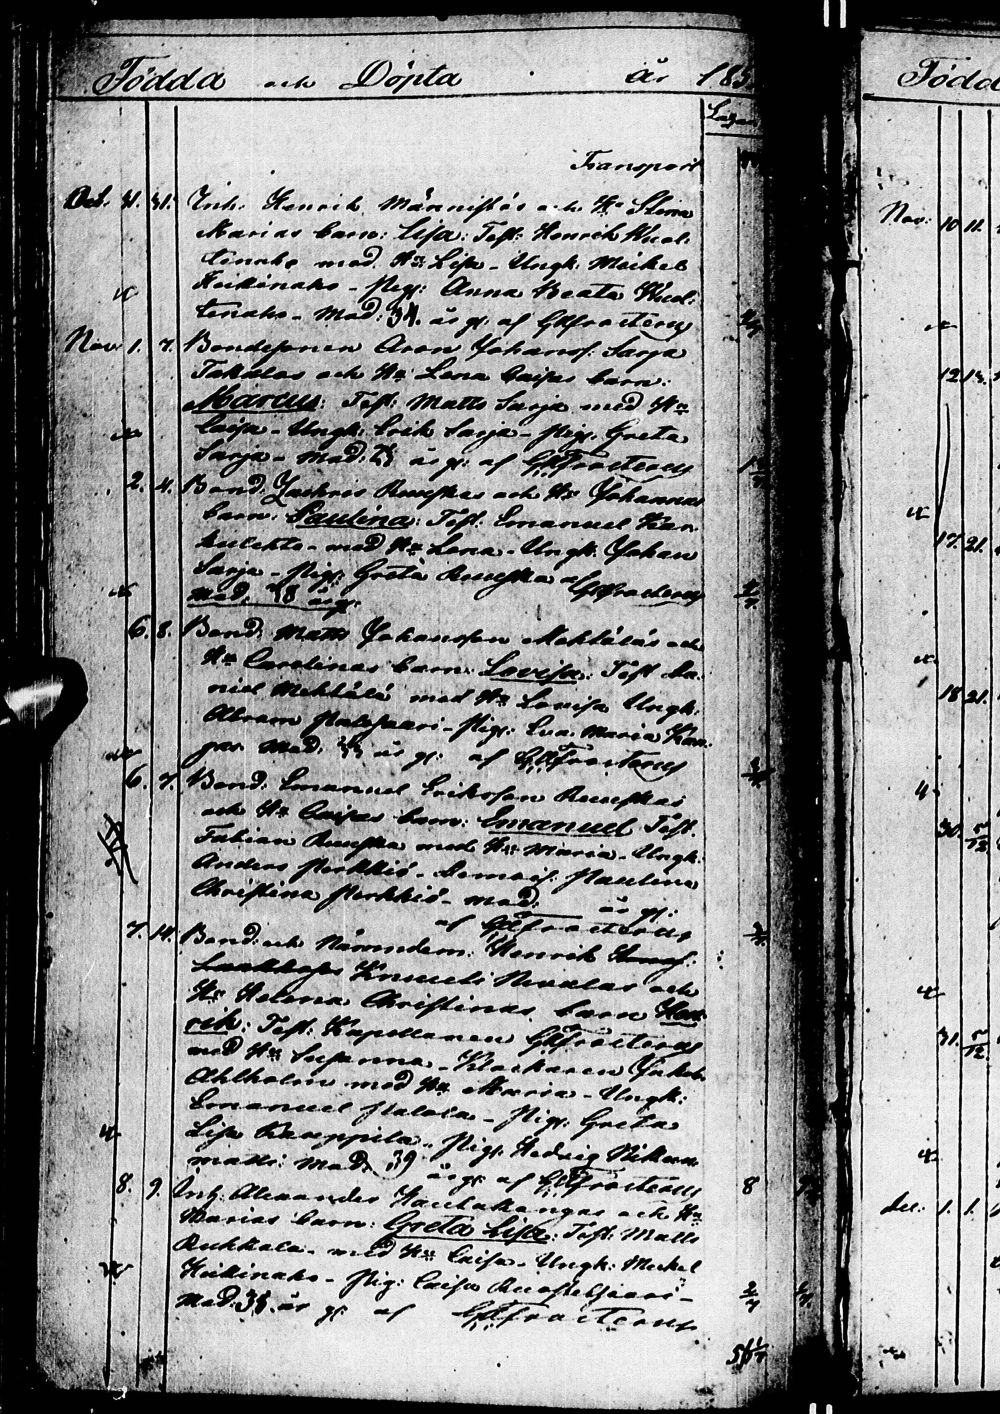 Födda och Döpta år 185
Transport
Oct. 31. 31. Inh. Henrik Männistös och H:u Stina
Marias barn: Lisa: Test: Henrik Kuol-
tinaho med H:u Lisa - Ungk. Mickel
Heikkinaho - Pig: Anna Beata Kuol-
tinaho - Mod: 34. år g: af GFrosterus
Nov. 1. 7. Bondesonen Aron Johanss: Sarja
Takalas och H:u Lena Caisas barn:
Marcus: Test: Matts Sarja med H:u
Caisa - Ungk: Erik Sarja - Pig: Greta
Sarja - Mod: 23 år g: af GFrosterus
2. 4. Bond: Zachris Ruuskas och H:u Johannas
barn: Paulina: Test: Emanuel Kan-
med H:u Lena - Ungk: Johan
Sarja - Pig: Greta Ruuska af GFrosterus
Mod. 38 år g:
6. 8. Bond: Matts Johansson Mehtäläs och
H:u Carolinas barn: Lovisa: Test Da-
niel Mehtälä med H:u Lovisa Ungk:
Abram Palosaari - Pig: Eva Maria Kan-
gas Mod: 33 år g: af GFrosterus
6. 7. Bond: Emanuel Eriksson Ruuskas
och H:u Caisas barn: Emanuel Test.
Fabian Ruuska med H:u Maria - Ungk:
Anders Perkkiö - Demois: Paulina
Christina Perkkiö - Mod: år g:
af GFrosterus
7. 14. Bond: och Nämndem: Henrik
Knuuti Nivalas och
H:u Helena Christinas barn Hen-
rik: Test: Kapellanen GFrosterus
med H:u Susanna - Klockaren Jakob
Ahlholm med H:u Maria - Ungk:
Emanuel Palola - Pig: Greta
Lisa Kauppila - Pig: Hedvig Niku-
matti: Mod: 39 år g: af GFrosterus 8
8. 9. Inh: Alexander Kauhakangas och H:u
Marias barn: Greta Lisa: Test: Matts
Rukkala - med H:u Caisa - Ungk: Mickel
Heikkinaho - Pig: Caisa
Mod: 38. år g: af GFrosterus
Födda
Nov: 10 11.
12 13.
17. 21.
18 21.
30. 5/12
31. 5/12
Dec: 1. 1.